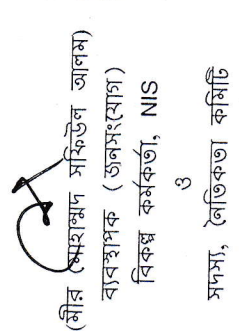 (মীর মোহাম্মদ সফিউল আলম)
ব্যবস্থাপক (জনসংযোগ)
বিকল্প কর্মকর্তা, NIS
ও
সদস্য, নৈতিকতা কমিটি